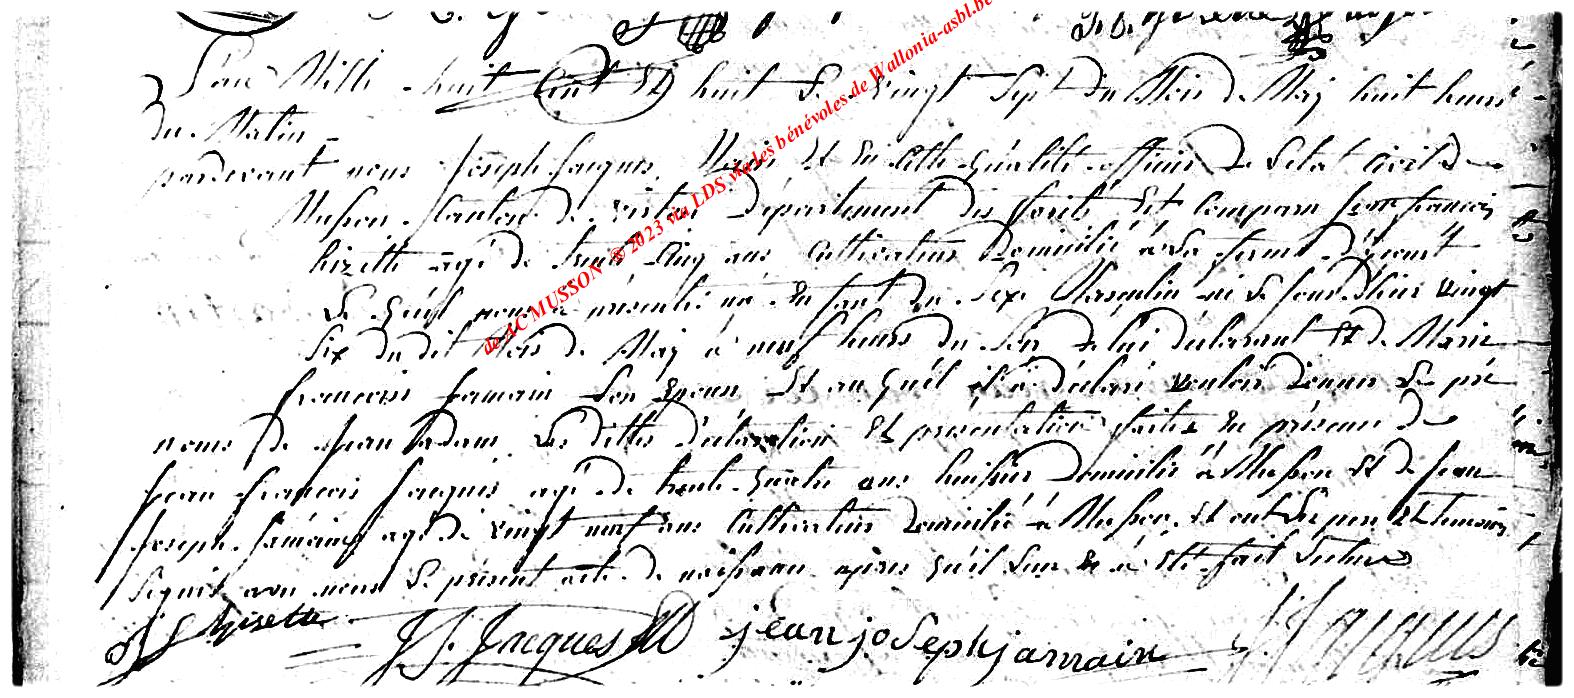 L'an Mille huit Cent et huit le vingt Sept du Mois de Maÿ huit heures
du Matin
pardevant nous Joseph Jacques, Maire et en cette qualité officier de l'etat Civil de
Musson Canton de virton Département des forêts, est comparu Jean françois
hizette agé de trente Cinq ans Cultivateur Domicilié à la ferme d'
le quel nous a présenté un Enfant du Sexe Masculin né le jour d'hier vingt
Six du dit Mois de Maÿ à neuf heures du Soir de lui déclarant et de Marie
françoise Jamain Son Epouse et au quel il a déclaré vouloir donner le pré
noms de Jean adam, les dittes déclaration Et présentation faites En présence de
Jean françois Jacques agé de trente quatre ans huissier Domicilié à Musson Et de Jean
Joseph Jamain agé de vingt neuf ans Cultivateur Domicilié à Musson, Et ont les pere Et temoins
Signé avec nous le présent acte de naissance apres qu'il leur en a été fait lecture
hizette J. J. Jacques M jean joseph jamain J. f. Jacques
de AC MUSSON © 2023 via LDS via les bénévoles de Wallonia-asbl.be